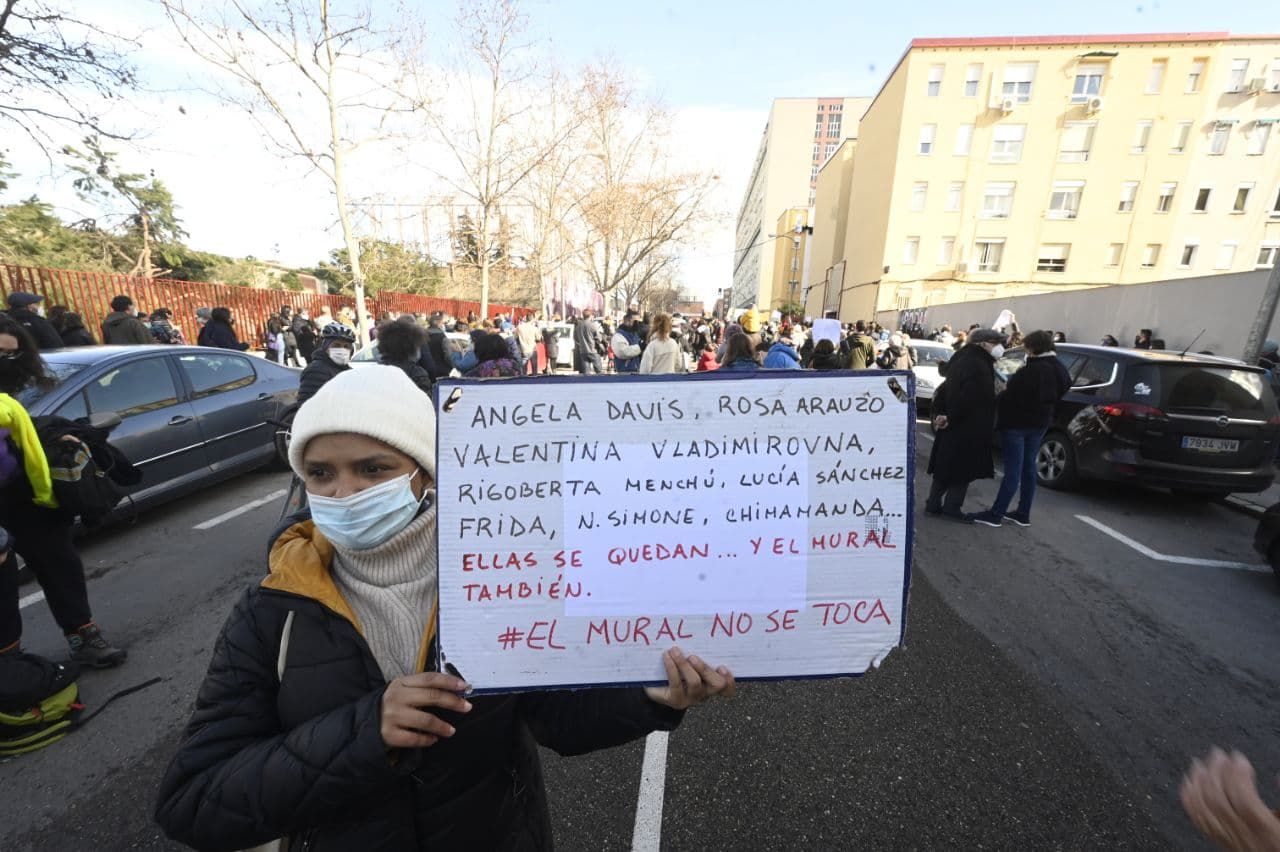 ANGELA DAVIS, ROSA ARAUZO
VALENTINA VLADIMIROVNA,
RIGOBERTA MENCHÚ, LUCÍA SÁNCHEZ
FRIDA, N. SIMONE, CHIMAMANDA...
ELLAS SE QUEDAN... Y EL MURAL
TAMBIÉN.
#EL MURAL NO SE TOCA
7934 JVW